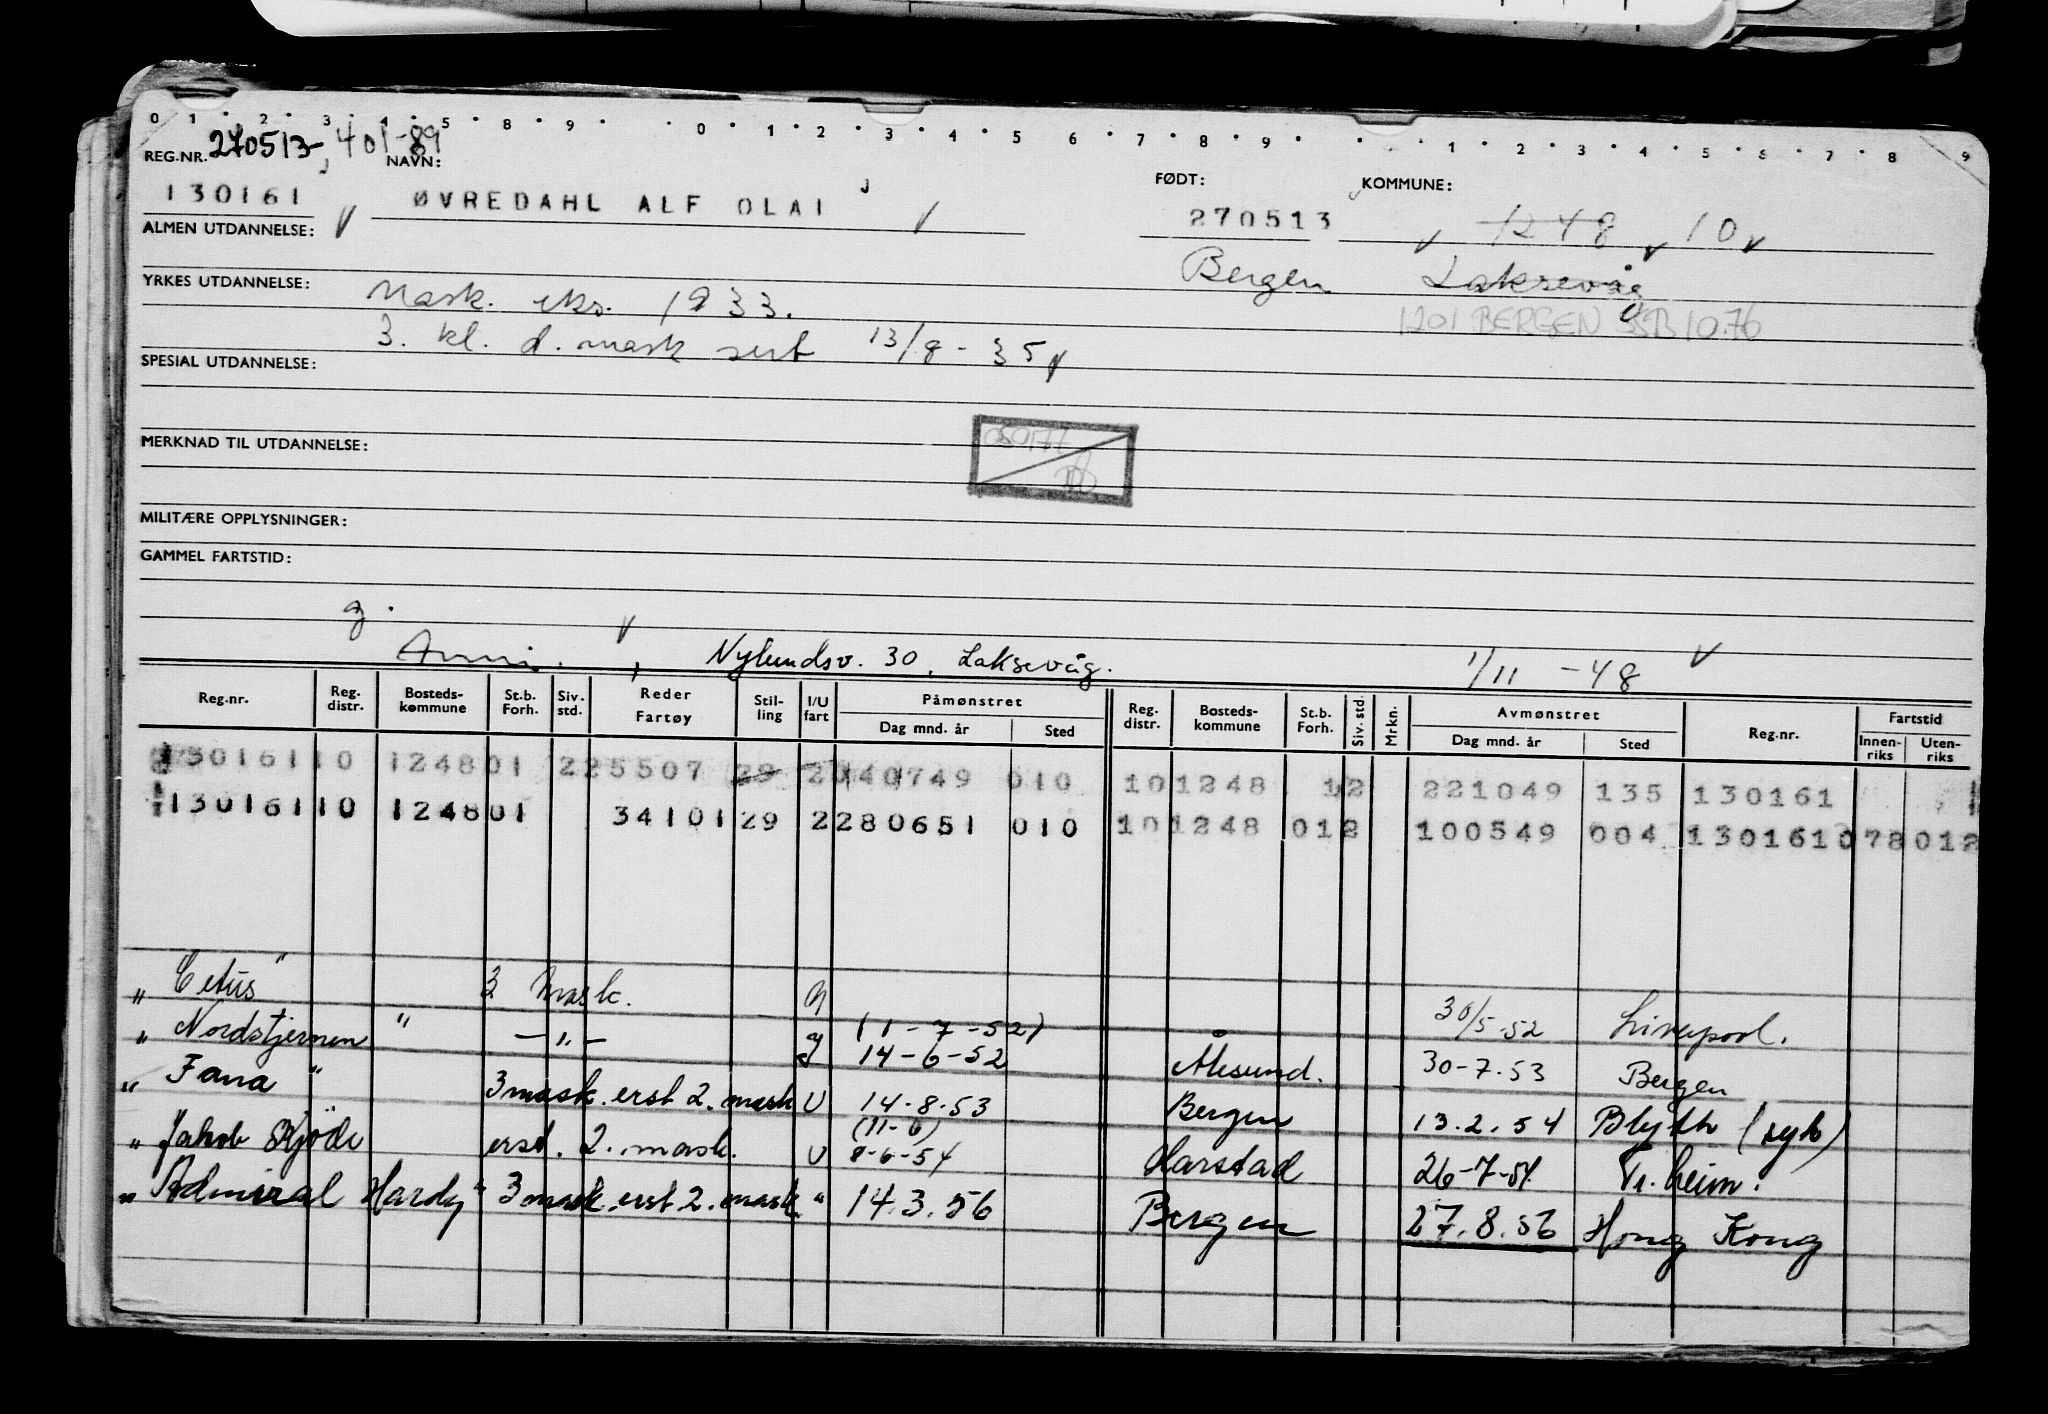 0 1 2 3 4 5 8 9 0 1 2 3 4 5 6 7 8 9 1 2 3 4 5 6 7 8 9
270513, 401-89
REG.NR. NAVN: FØDT: KOMMUNE:
130161 ØVREDAHL ALF OLAI 270513 1248 10
ALMEN UTDANNELSE: Bergen Laksevåg
YRKES UTDANNELSE: Mask. eks. 1933. 1201 BERGEN SSB 10.76
3. kl. d. mask sert 13/8-35
SPESIAL UTDANNELSE:
MERKNAD TIL UTDANNELSE:
MILITÆRE OPPLYSNINGER:
GAMMEL FARTSTID:
g.
Anni, Nylundsv. 30, Laksevåg. 1/11-48
Reg.nr. Reg. distr. Bosteds-kommune St.b. Forh. Siv. std. Reder Fartøy Stil-ling I/U fart Påmønstret Dag mnd. år Sted Reg. distr. Bosteds-kommune St.b. Forh. Siv. std. Mrkn. Avmønstret Dag mnd. år Sted Reg.nr. Fartstid Innen-riks Uten-riks
130161 10 1248 01 2 25507 29 2 040749 010 10 1248 1 2 221049 135 130161
130161 10 1248 01 34101 29 2 280651 010 10 1248 01 2 100549 004 130161 078 012
" Cetus" 3 Mask. 30/5-52 Liverpool.
" Nordstjernen " -"- (1-7-52) 14-6-52 Ålesund. 30-7-53 Bergen
" Fana " 3 mask. erst 2. mask U 14-8-53 Bergen 13.2.54 Blyth (syk)
" Jakob Kjøde erst. 2. mask. U (11-6) 8-6-54 Harstad 26-7-54 Tr.heim.
" Admiral Hardy" 3 mask. erst 2. mask. " 14.3.56 Bergen 27.8.56 Hong Kong